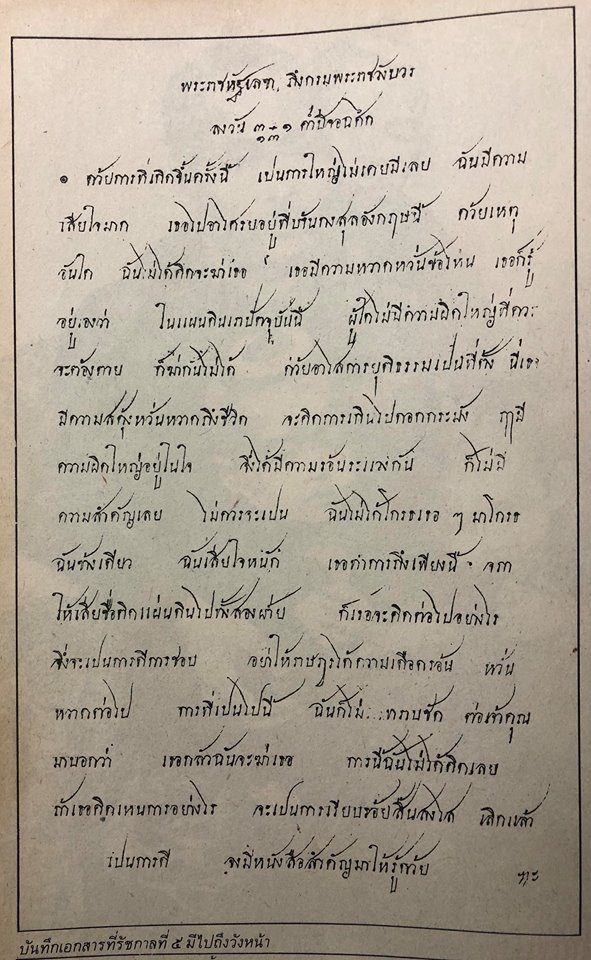 พระราชหัฐเลขา, ถึงกรมพระราชวังบวร
ลงวัน ๓ ๑ ค่ำปีจอฉศก
๑ ด้วยการที่เกิดขึ้นครั้งนี้ เปนการใหญ่ไม่เคยมีเลย ฉันมีความ
เสียใจมาก เธอไปอาไศรยอยู่ที่บ้านกงสุลอังกฤษนี้ ด้วยเหตุ
อันใด ฉันไม่ได้คิดจะฆ่าเธอ เธอมีความหวาดหวั่นข้อไหน เธอก็รู้
อยู่เองว่า ในแผนดินเรปัตจุบันนี้ ผู้ใดไม่มีความผิดใหญ่ที่ควร
จะต้องตาย ก็ฆ่ากันไม่ได้ ด้วยอาไศการยุติธรรมเปนที่ตั้ง นี่เธอ
มีความสดุ้งหวั่นหวาดถึงชีวิต จะคิดการเกินไปดอกกระมัง ฤๅมี
ความผิดใหญ่อยู่ในใจ ซึ่งได้มีความร้อนระแวงกัน ก็ไม่มี
ความสำคัญเลย ไม่ควรจะเปน ฉันไม่ได้โกรธเธอ ๆ มาโกรธ
ฉันข้างเดียว ฉันเสียใจหนักก์ เธอทำการถึงเพียงนี้
ให้เสียชื่อติดแผ่นดินไปทั้งสองฝ่าย ก็เธอจะคิดต่อไปอย่างไร
ซึ่งจะเปนการดีการชอบ อย่าให้ราษฎรได้ความเดือดร้อน หวั่น
หวาดต่อไป การที่เปนไปนี้ ฉันก็ไม่...ทราบชัด ต่อเจ้าคุณ
มาบอกว่า เธอกลัวฉันจะฆ่าเธอ การนี้ฉันไม่ได้คิดเลย
ถ้าเธอคิดเหนการอย่างไร จะเปนการเรียบร้อยสิ้นสงไส เลิกแล้ว
เปนการดี จงมีหนังสือสำคัญมาให้รู้ด้วย ฯะ
บันทึกเอกสารที่รัชกาลที่ ๕ มีไปถึงวังหน้า